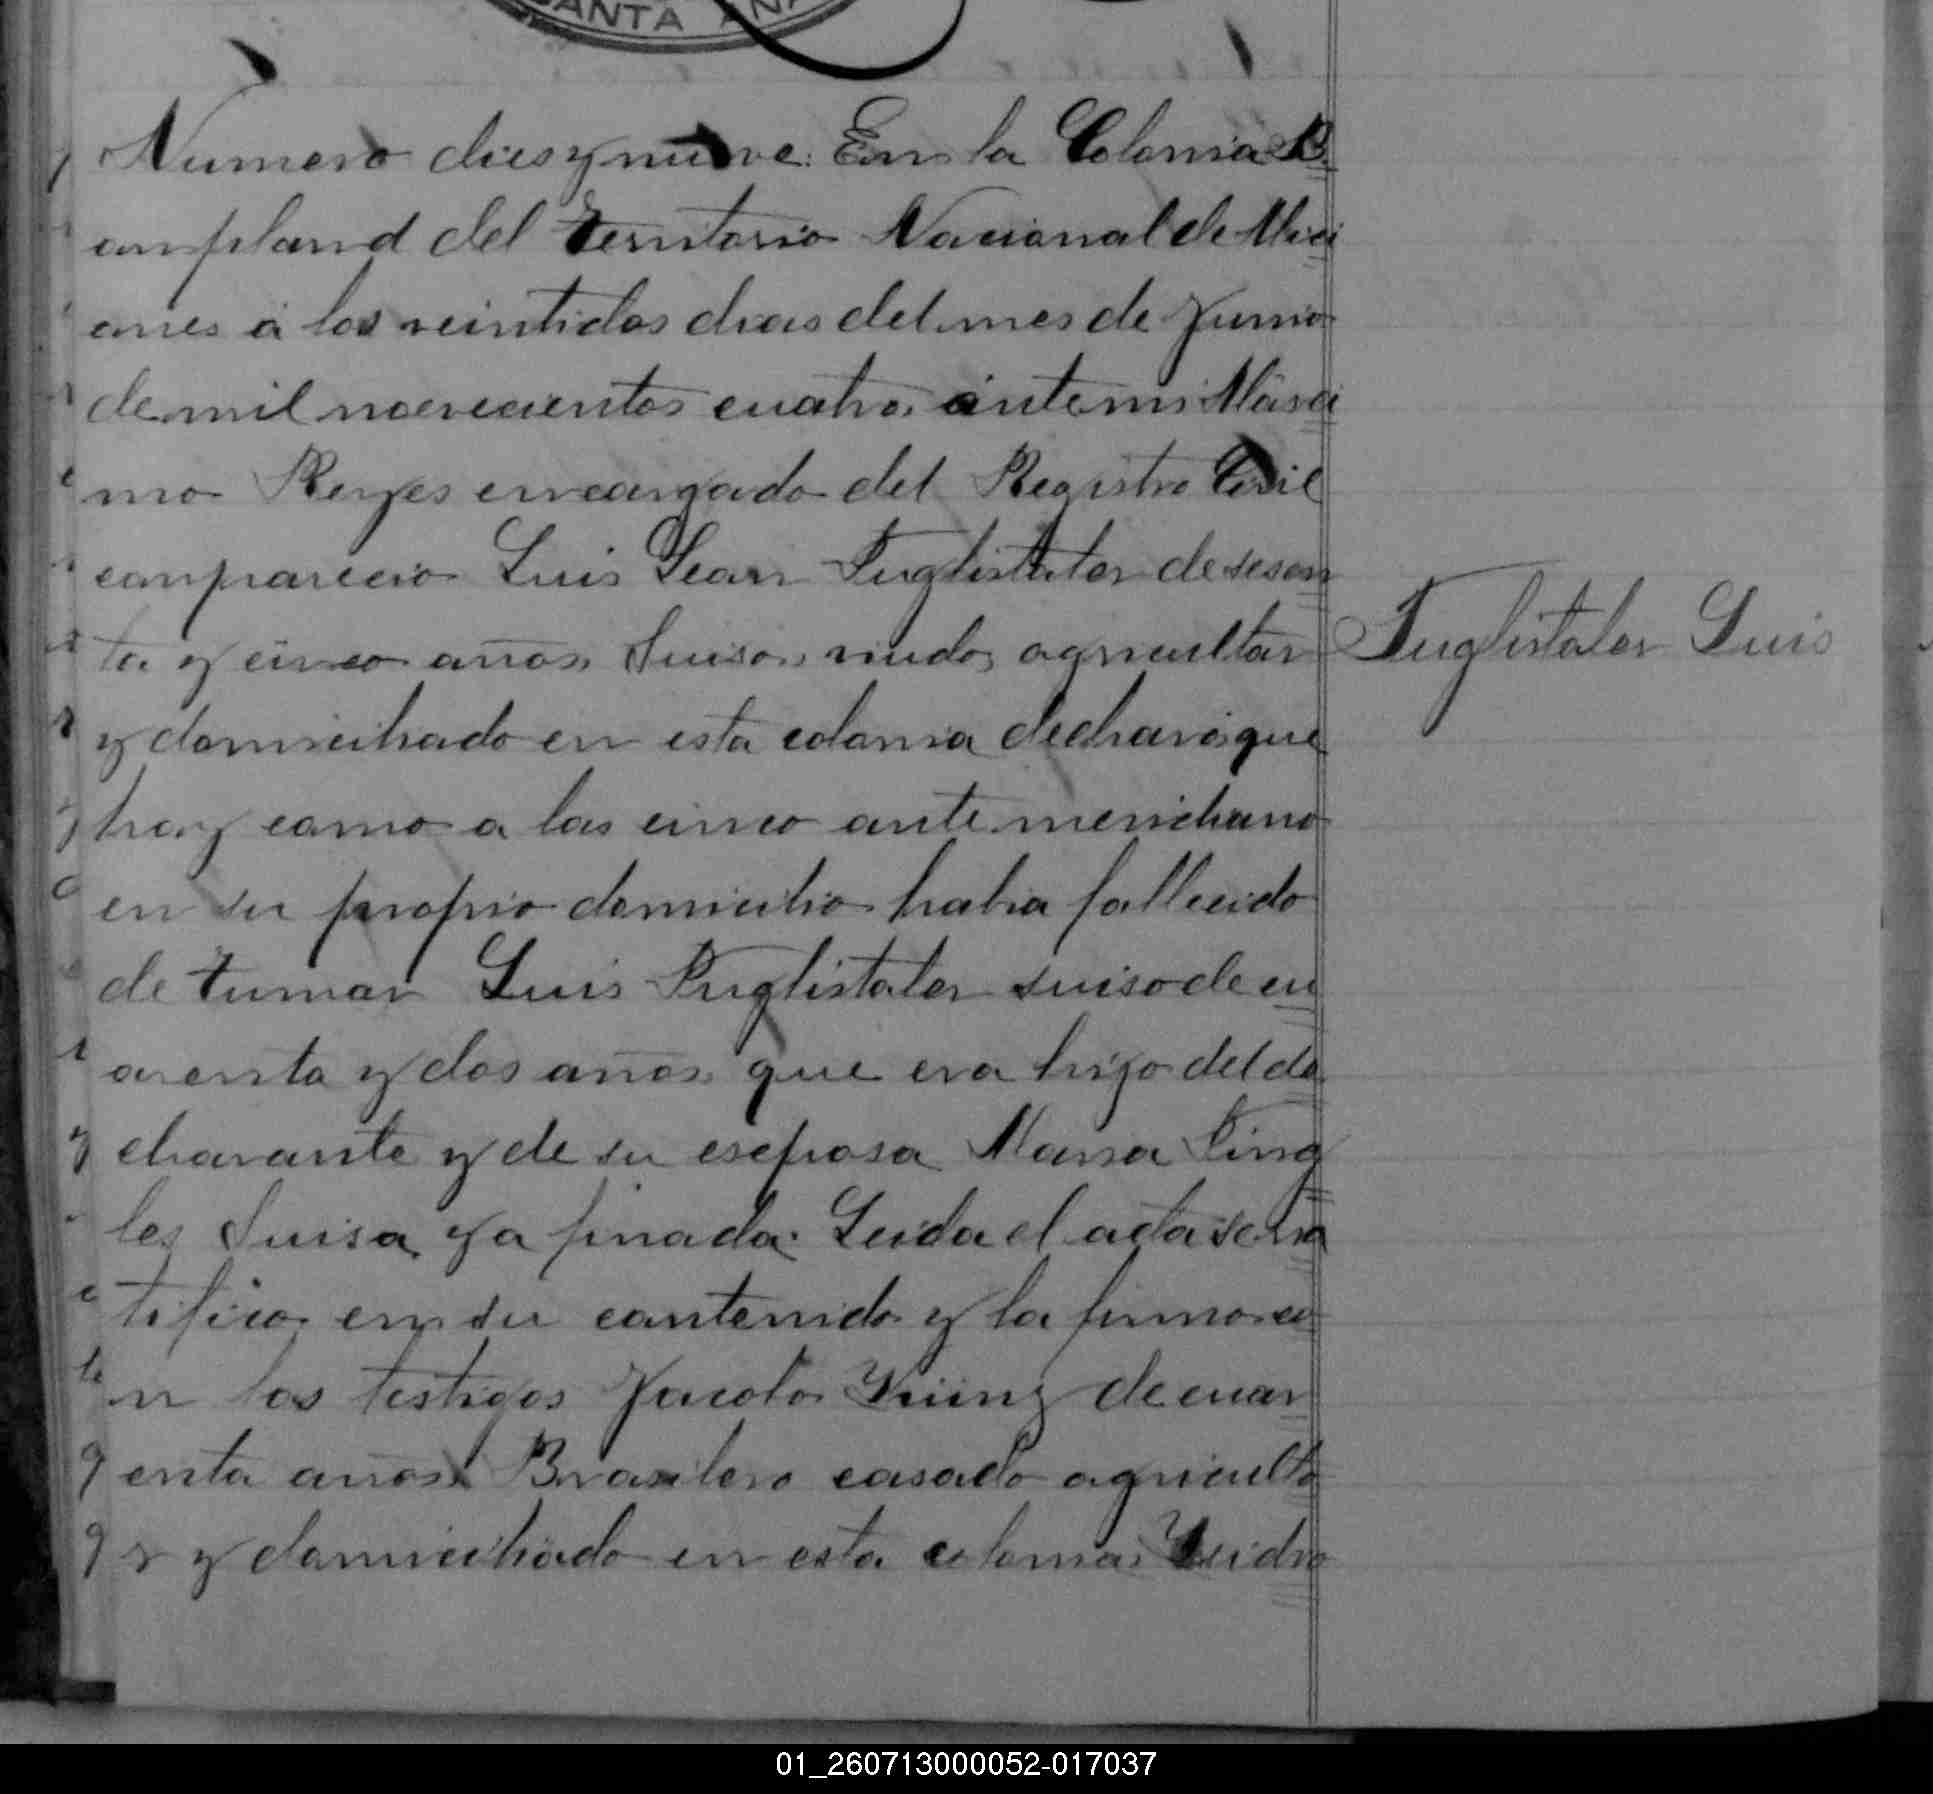 SANTA ANA
Numero dies y nueve: En la Colonia B
onpland del Territorio Nacional de Mici
ones á los veintidos dias del mes de Junio
de mil novecientos cuatro, ante mi Máxi
mo Reyes encargado del Registro Civil
conparecio Luis Jean Fuglistaler de sesen
ta y cinco años, Suiso, viudo, agricultor
y domiciliado en esta colonia declaró que
hoy como a las cinco ante meridiano
en su propio domicilio habia fallecido
de tumor Luis Fuglistaler suiso de cu
arenta y dos años, que era hijo del de
clarante y de su esposa Maria
Suisa, ya finada. Leida el acta se ra
tifico, en su contenido y la firmo co
n los testigos Jacobo de cuar
enta años, Brasilero casado agriculto
r y domiciliado en esta colonia, Ysidro
Fuglistaler Luis
01_260713000052-017037